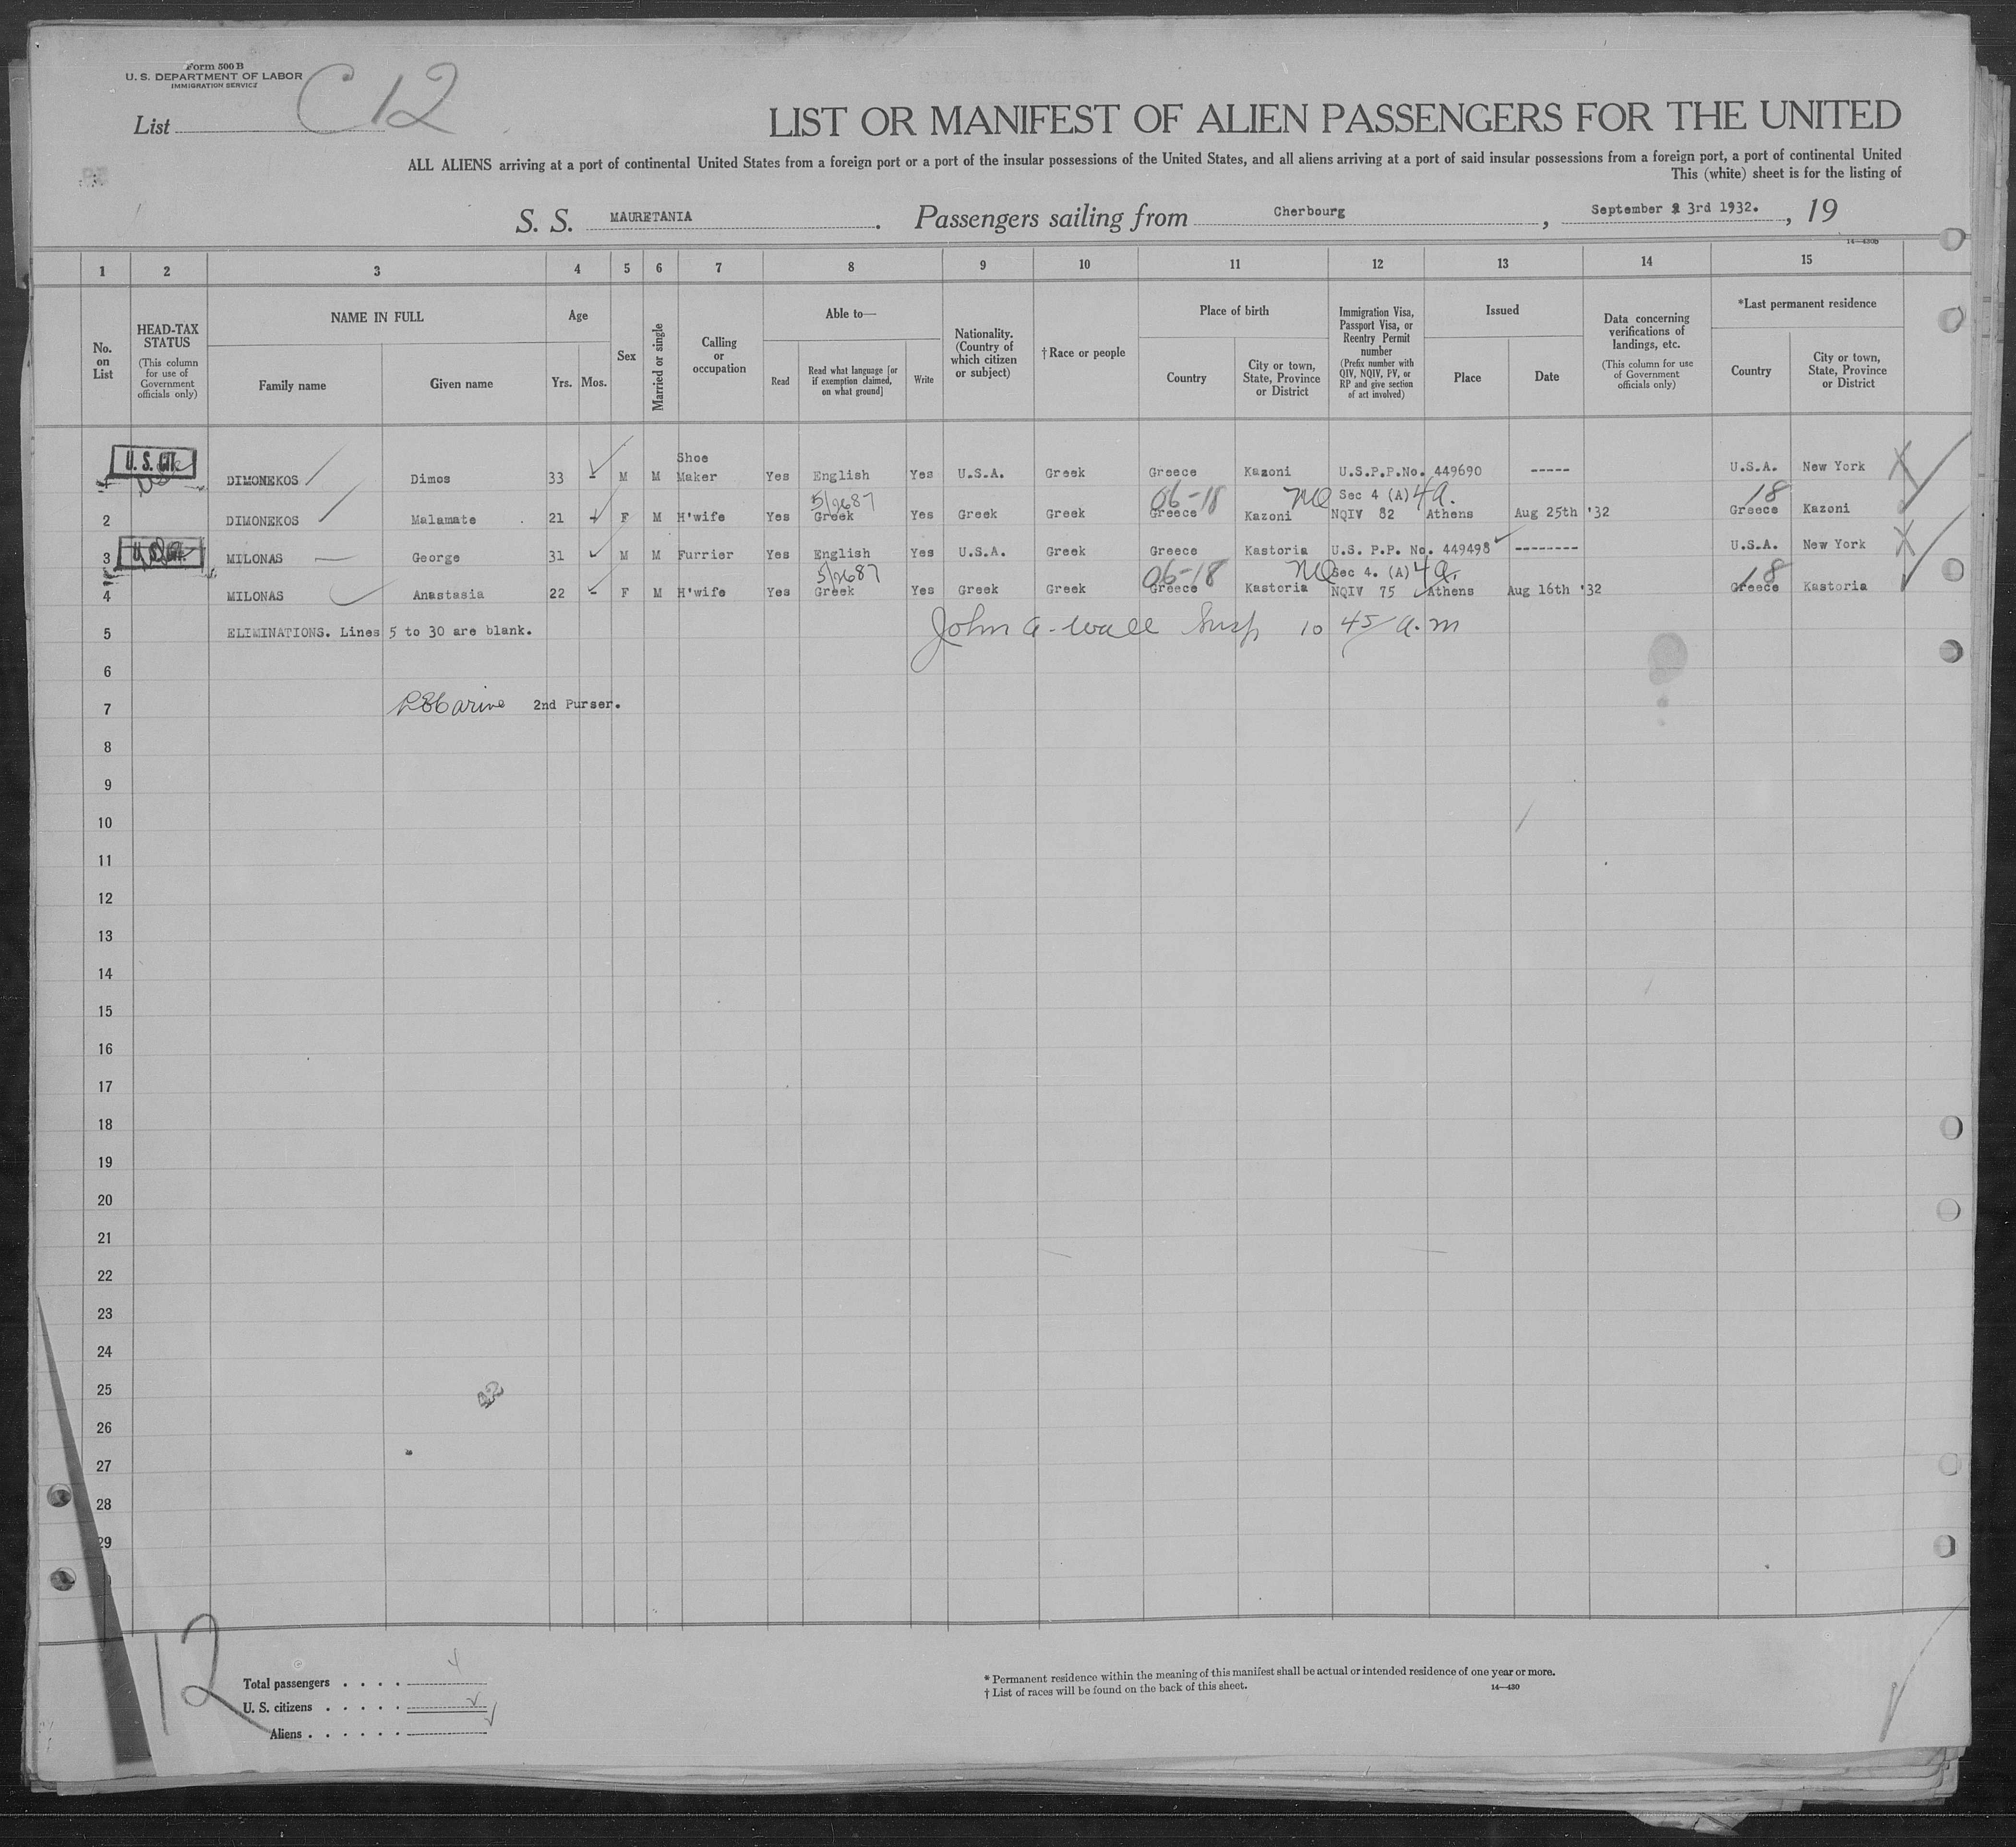 Form 500 B
U. S. DEPARTMENT OF LABOR
IMMIGRATION SERVICE
List C 12
LIST OR MANIFEST OF ALIEN PASSENGERS FOR THE UNITED
ALL ALIENS arriving at a port of continental United States from a foreign port or a port of the insular possessions of the United States, and all aliens arriving at a port of said insular possessions from a foreign port, a port of continental United
This (white) sheet is for the listing of
S. S. MAURETANIA. Passengers sailing from Cherbourg, September 3rd 1932., 19
14—430B
1 2 3 4 5 6 7 8 9 10 11 12 13 14 15
No. on List
HEAD-TAX STATUS
(This column for use of Government officials only)
NAME IN FULL
Family name Given name
Age
Yrs. Mos.
Sex
Married or single
Calling or occupation
Able to—
Read
Read what language [or if exemption claimed, on what ground]
Write
Nationality. (Country of which citizen or subject)
† Race or people
Place of birth
Country
City or town, State, Province or District
Immigration Visa, Passport Visa, or Reentry Permit number
(Prefix number with QIV, NQIV, PV, or RP and give section of act involved)
Issued
Place Date
Data concerning verifications of landings, etc.
(This column for use of Government officials only)
*Last permanent residence
Country
City or town, State, Province or District
U. S. Cit.
Shoe
1 DIMONEKOS Dimos 33 - M M Maker Yes English Yes U.S.A. Greek Greece Kazoni U.S.P.P.No. 449690 ----- U.S.A. New York
5/2687 06-18 NQ Sec 4 (A) 4a. 18
2 DIMONEKOS Malamate 21 - F M H'wife Yes Greek Yes Greek Greek Greece Kazoni NQIV 82 Athens Aug 25th '32 Greece Kazoni
3 U. S. Cit. MILONAS George 31 - M M Furrier Yes English Yes U.S.A. Greek Greece Kastoria U.S. P.P. No. 449498 -------- U.S.A. New York
5/2687 06-18 NQ Sec 4. (A) 4a. 18
4 MILONAS Anastasia 22 - F M H'wife Yes Greek Yes Greek Greek Greece Kastoria NQIV 75 Athens Aug 16th '32 Greece Kastoria
5 ELIMINATIONS. Lines 5 to 30 are blank. John A. Wall Insp 10 45 a.m
6
7 2nd Purser.
8
9
10
11
12
13
14
15
16
17
18
19
20
21
22
23
24
25
26
27
28
29
12
Total passengers . . . .
U. S. citizens . . . . .
Aliens . . . . . .
* Permanent residence within the meaning of this manifest shall be actual or intended residence of one year or more.
† List of races will be found on the back of this sheet.
14—430